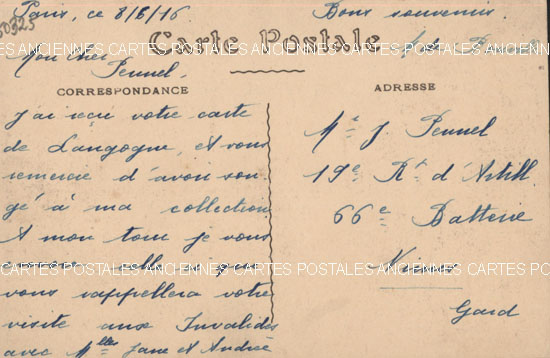 Paris, ce 8/6/16
Bons souvenirs
50325
Carte Postale
Mon cher
Pennel,
CORRESPONDANCE
J'ai reçu votre carte
de Langogne, et vous
remercie d'avoir son
gé à ma collection
A mon tour je vous
envoie celle
vous rappellera votre
visite aux Invalides
avec Mlles Jane et Andrée
ADRESSE
Mr J. Pennel
19e Rt d'Artill
66e Batterie
Nimes
Gard
CARTES ANCIENNES CARTES POSTALES ANCIENNES CARTES POSTALES ANCIENNES CARTES
CARTES POSTALES ANCIENNES CARTES POSTALES ANCIENNES CARTES POS